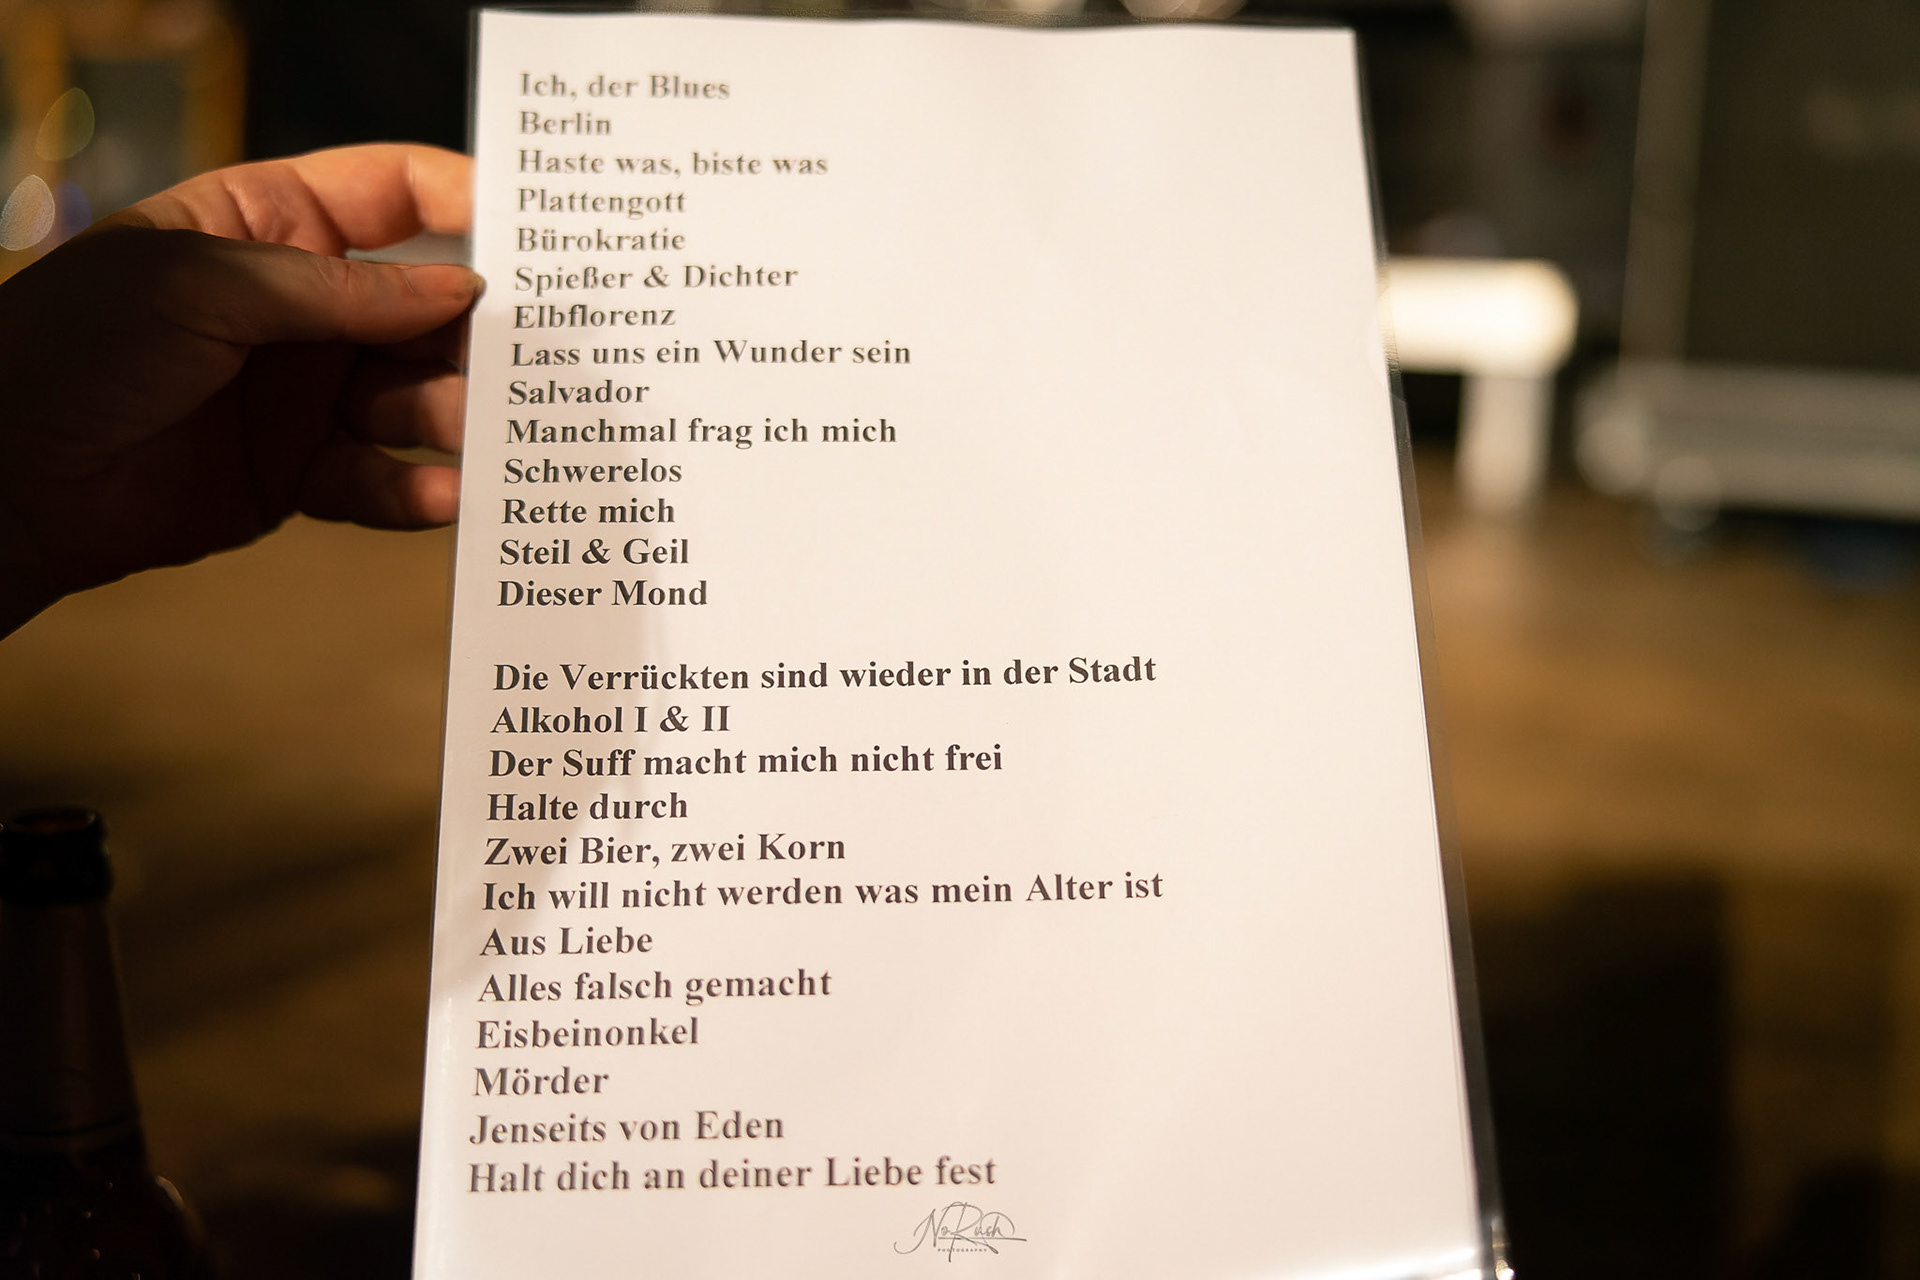 Ich, der Blues
Berlin
Haste was, biste was
Plattengott
Bürokratie
Spießer & Dichter
Elbflorenz
Lass uns ein Wunder sein
Salvador
Manchmal frag ich mich
Schwerelos
Rette mich
Steil & Geil
Dieser Mond
Die Verrückten sind wieder in der Stadt
Alkohol I & II
Der Suff macht mich nicht frei
Halte durch
Zwei Bier, zwei Korn
Ich will nicht werden was mein Alter ist
Aus Liebe
Alles falsch gemacht
Eisbeinonkel
Mörder
Jenseits von Eden
Halt dich an deiner Liebe fest
NoRush
PHOTOGRAPHY